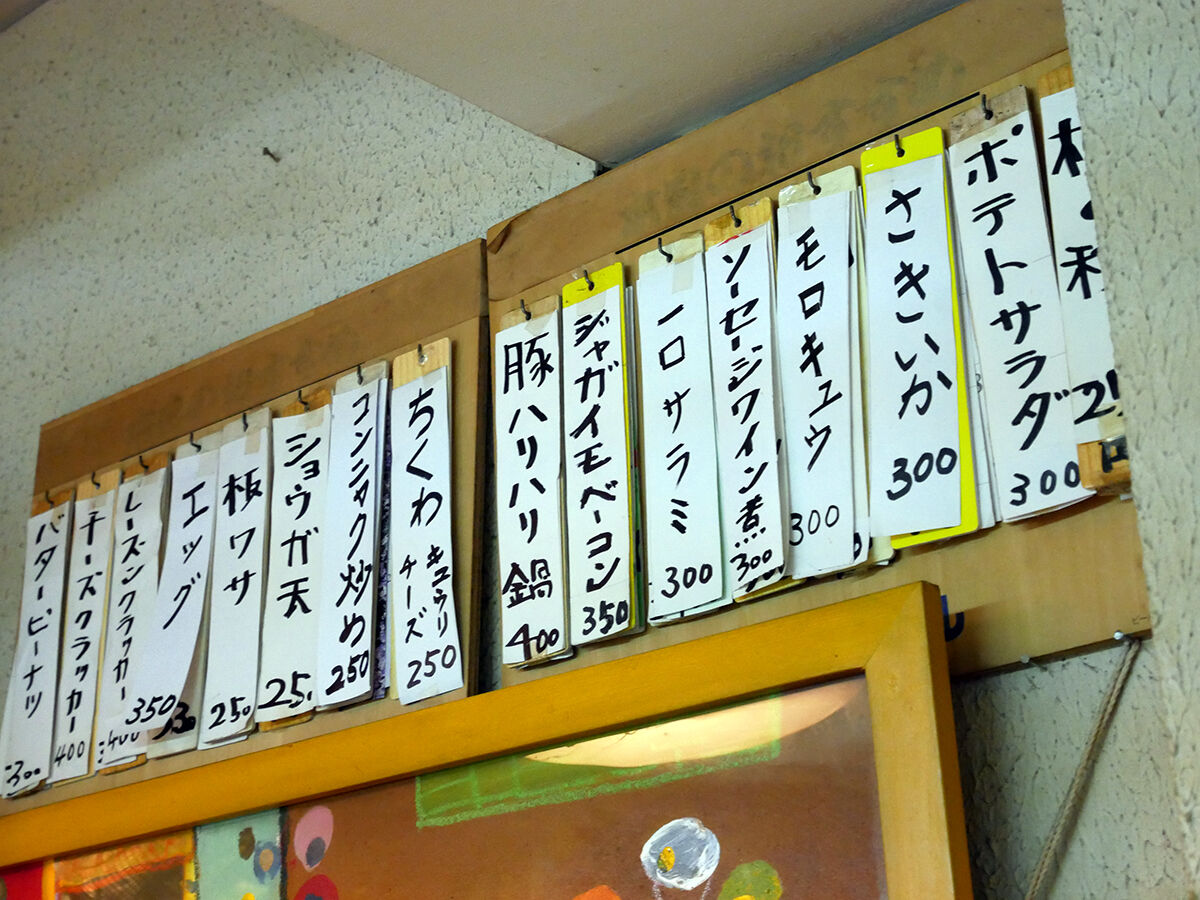 ポテトサラダ
300
さきいか
300
モロキュウ
300
ソーセージワイン煮
300
一口サラミ
300
ジャガイモベーコン
350
豚ハリハリ鍋
400
ちくわ
キュウリ
チーズ
250
コンニャク炒め
250
ショウガ天
25
板ワサ
250
エッグ
350
レーズンクラッカー
400
チーズクラッカー
400
バターピーナツ
300